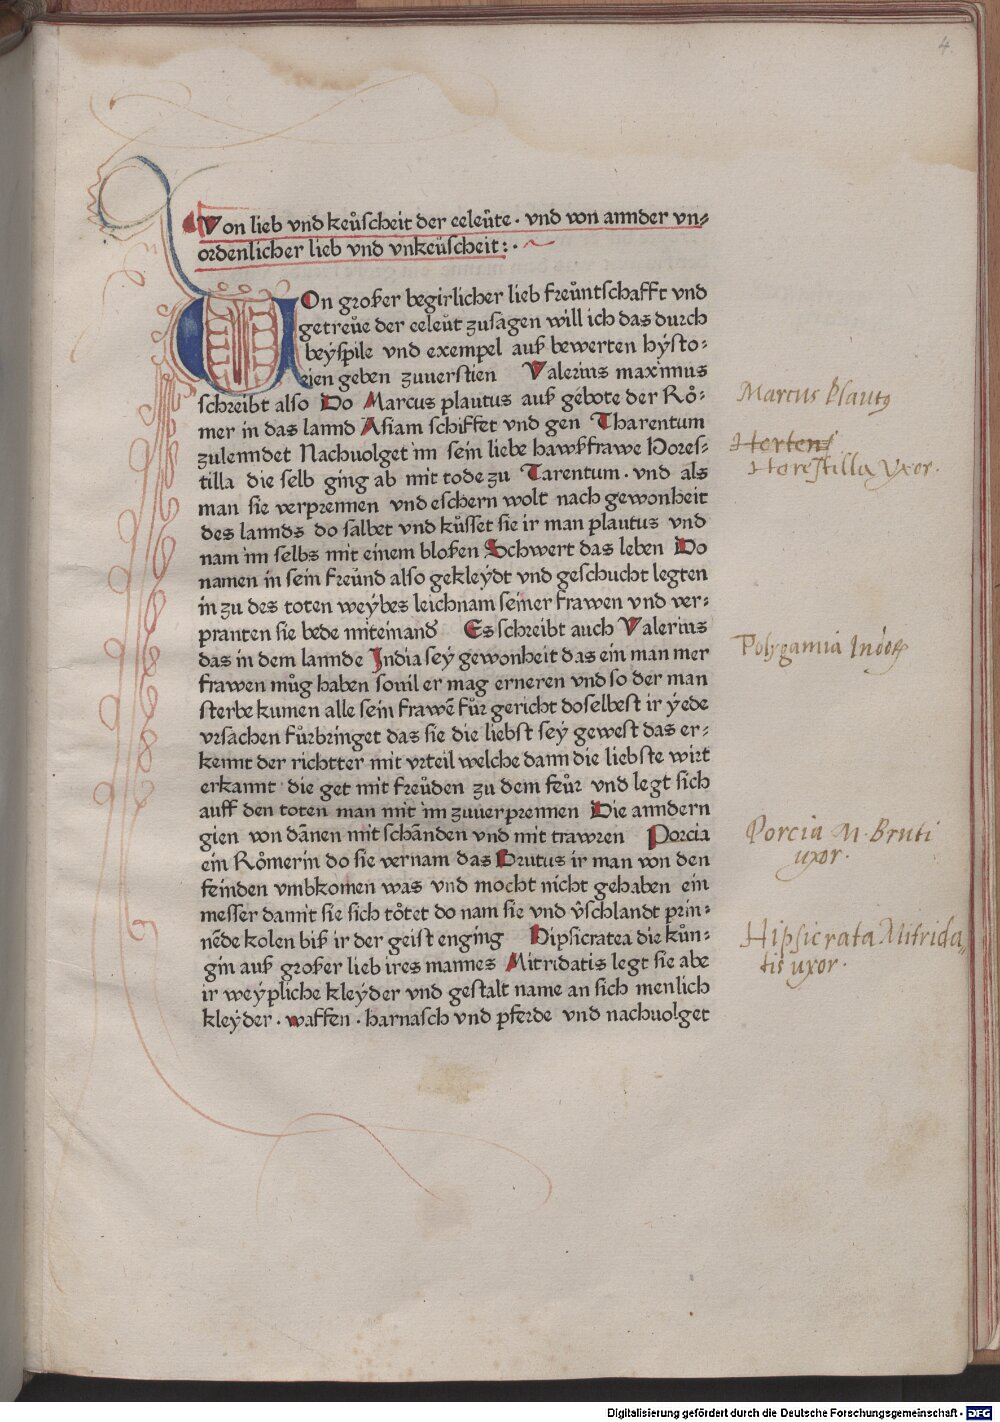 4
Von lieb vnd keůscheit der eeleůte · vnd von annder vn⸗
ordenlicher lieb vnd vnkeůscheit: ·
VOn grosser begirlicher lieb freůntschafft vnd
getreůe der eeleůt zusagen will ich das durch
beÿspile vnd exempel auß bewerten hÿsto⸗
rien geben zuuerstien Valerius maximus
schreibt also Do Marcus plautus auß gebote der Rǒ⸗
mer in das lannd Asiam schiffet vnd gen Tharentum
zulenndet Nachuolget im sein liebe hawßfrawe Hores⸗
tilla die selb ging ab mit tode zu Tarentum · vnd als
man sie verprennen vnd eschern wolt nach gewonheit
des lannds do salbet vnd kůsset sie ir man plautus vnd
nam im selbs mit einem bloßen Schwert das leben Do
namen in sein freůnd also gekleÿdt vnd geschucht legten
in zu des toten weÿbes leichnam seiner frawen vnd ver⸗
pranten sie bede miteinand Es schreibt auch Valerius
das in dem lannde India seÿ gewonheit das ein man mer
frawen můg haben souil er mag erneren vnd so der man
sterbe kumen alle sein frawē fůr gericht doselbest ir ÿede
vrsachen fůrbringet das sie die liebst seÿ gewest das er⸗
kennt der richtter mit vrteil welche dann die liebste wirt
erkannt die get mit freůden zu dem feůr vnd legt sich
auff den toten man mit im zuuerprennen Die anndern
gien von dānen mit schānden vnd mit trawren Porcia
ein Rǒmerin do sie vernam das Brutus ir man von den
feinden vmbkomen was vnd mocht nicht gehaben ein
messer damit sie sich tǒtet do nam sie vnd v̄schlandt prin⸗
nēde kolen biß ir der geist enging Hipsicratea die kůn⸗
gin auß großer lieb ires mannes Mitridatis legt sie abe
ir weÿpliche kleÿder vnd gestalt name an sich menlich
kleÿder · waffen · harnasch vnd pferde vnd nachuolget
Marcus Plautꝰ
Hortens
Horestilla Vxor.
Polygamia Indoꝝ
Porcia M. Bruti
uxor.
Hipsicrata Mitrida„
tis uxor.
Digitalisierung gefördert durch die Deutsche Forschungsgemeinschaft - DFG